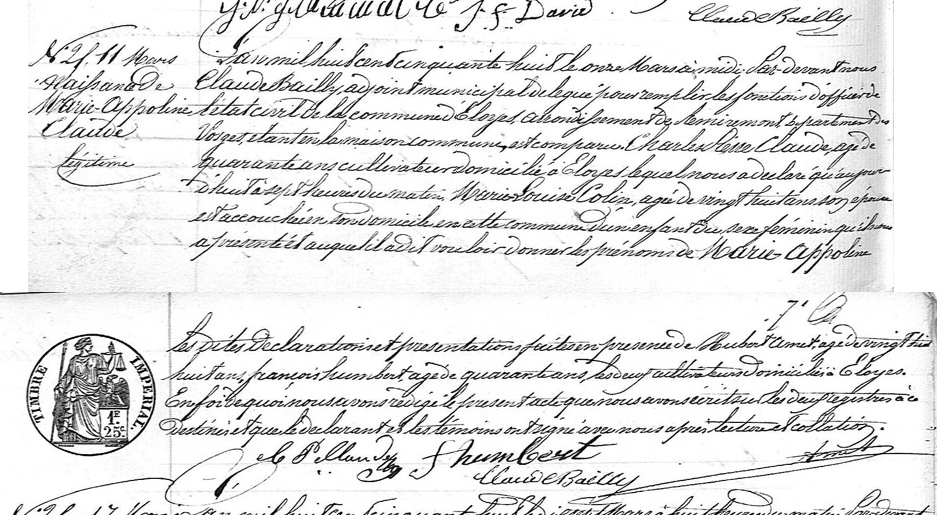 J. F. David
Claude Bailly
N.° 25. 11 Mars
Naissance de
Marie-Appoline
Claude
légitime
L'an mil huit cent cinquante huit le onze Mars à midi, Par-devant nous
Claude Bailly, adjoint municipal délégué pour remplir les fonctions d'officier de
l'état civil de la commune d'Eloyes, arrondissement de Remiremont Département des
Vosges, étant en la maison commune, est comparu Charles Claude, agé de
quarante ans cultivateur domicilié à Eloyes lequel nous a déclaré qu'aujour-
d'huit à sept heures du matin, Marie Louise Colin, agée de vingt huit ans son épouse
est accouchée en son domicile en cette commune d'un enfant du sexe féminin qu'il nous
a présenté et auquel il a dit vouloir donner les prénoms de Marie-Appoline
TIMBRE IMPERIAL
1F. 25c.
Les dites Déclaration et présentation faites en présence de Hubert agé de vingt
huit ans, françois humbert, agé de quarante ans, les deux cultivateurs domiciliés à Eloyes.
En foi de quoi nous avons rédigé le présent acte que nous avons écrit sur les deux registres à ce
destinés et que le déclarant et les témoins ont signé avec nous après lecture et collation.
f humbert
Claude Bailly
17 Mars an mil huit cent cinquante huit le Mars à huit heures du matin Pardevant